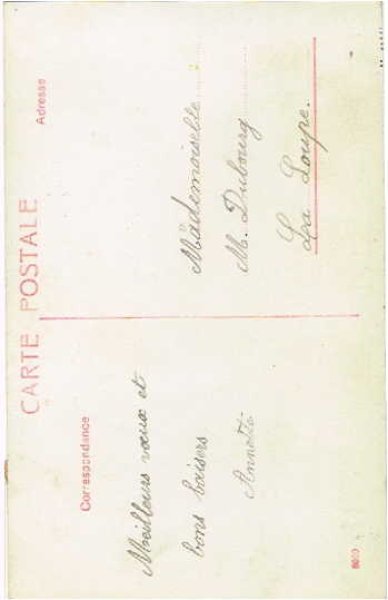 CARTE POSTALE
Correspondance
Meilleurs vœux et
bons baisers
Adresse
Mademoiselle
M. Dubourg
La Loupe.